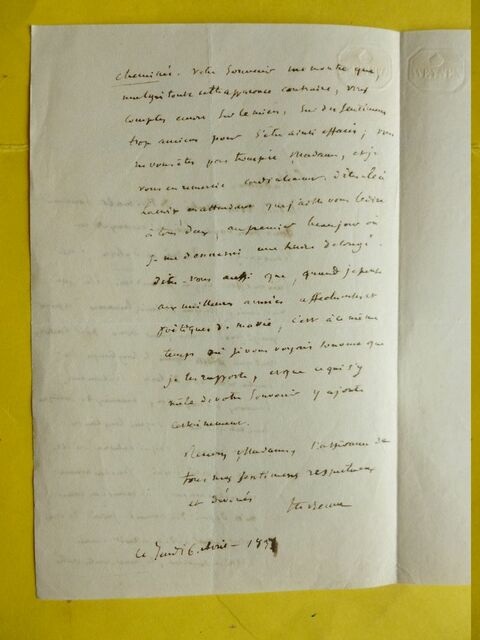 cheminée. Votre Souvenir me montre que,
malgré toute cette apparence contraire, vous
comptez encore sur le mien, sur des sentimens
trop anciens pour s'être ainsi effacés ; vous
ne vous êtes pas trompée, Madame, et je
vous en remercie cordialement. Dites-le à
en attendant que j'aille vous le dire
à tous deux, au premier beau jour où
je me donnerai une heure de congé.
dites-vous aussi que, quand je pense
aux meilleures années affectueuses et
poétiques de ma vie, c'est à ce même
temps où je vous voyais que
je les rapporte, et que ce qui s'y
mêle de votre Souvenir y ajoute
certainement.
Recevez, Madame, l'assurance de
tous mes sentimens respectueux
et dévoués
Ste-Beuve
ce jeudi 6 avril